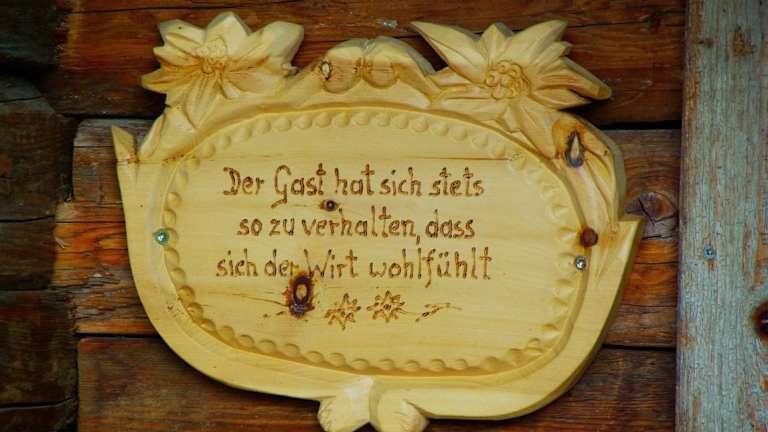 Der Gast hat sich stets
so zu verhalten, dass
sich der Wirt wohlfühlt